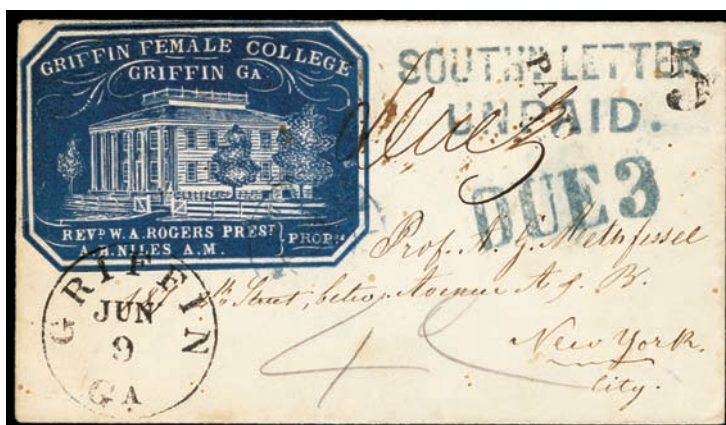 GRIFFIN FEMALE COLLEGE
GRIFFIN GA.
REVD W.A. ROGERS PREST
A.B. NILES A.M.
PROPRS
SOUTHN LETTER
UNPAID.
PAID
5
Due 3
DUE 3
Prof. A. G. Methfessel
Street, betw. Avenue A & B.
New York.
City.
GRIFFIN
JUN
9
GA